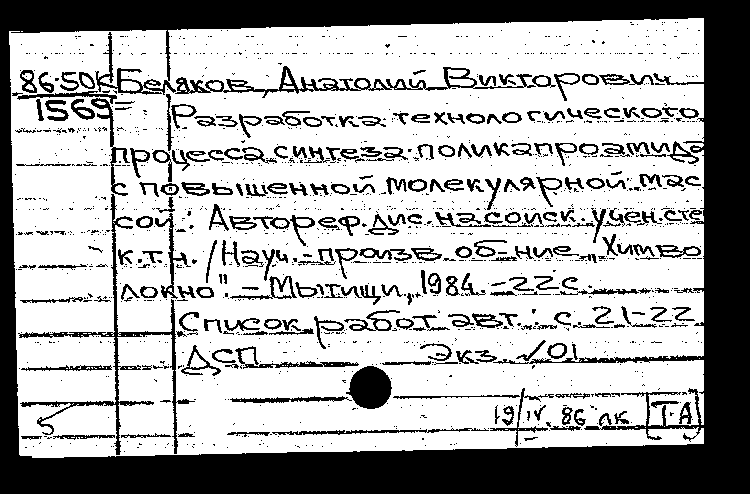 86-50К Беляков, Анатолий Викторович
1569= Разработка технологического
процесса синтеза поликапроамида
с повышенной молекулярной мас
сой : Автореф. дис. на соиск. учен. сте
к.т.н. / Науч.-произв. об-ние „Химво
локно". - Мытищи, 1984. - 22 с.
Список работ авт.: с. 21-22
ДСП Экз. √01
5 19/IV. 86 лк Т-А